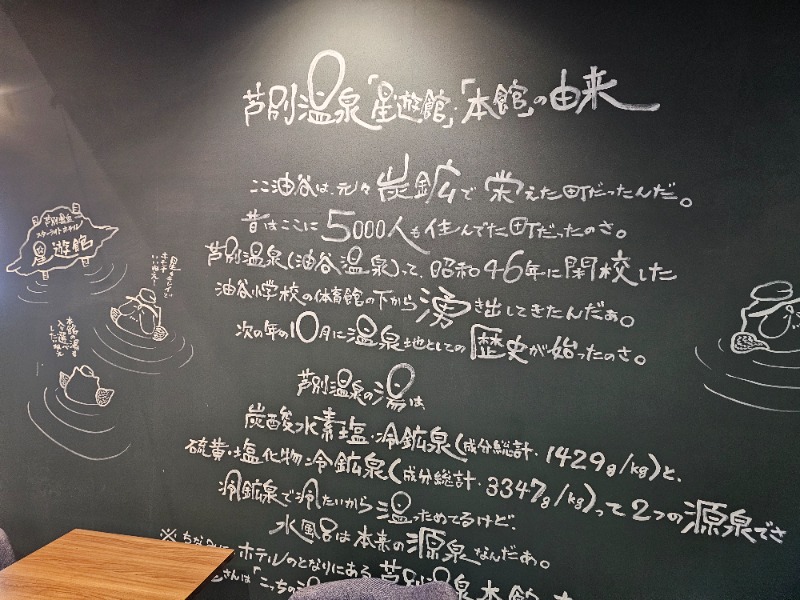 芦別温泉「星遊館」・「本館」の由来
ここ油谷は、元々炭鉱で栄えた町だったんだ。
昔はここに5000人も住んでた町だったのさ。
芦別温泉(油谷温泉)って、昭和46年に閉校した
油谷小学校の体育館の下から湧き出してきたんだぁ。
次の年の10月に温泉地としての歴史が始ったのさ。
芦別温泉の湯は
炭酸水素塩・冷鉱泉(成分総計・1429g/kg)と、
硫黄・塩化物冷鉱泉(成分総計・3347g/kg)って2つの源泉でさ
冷鉱泉で冷たいから温っためてるけど、
水風呂は本来の源泉なんだぁ。
※ちなみに、ホテルのとなりにある芦別温泉本館
さんは「こっちの
芦別温泉
スターライトホテル
星遊館